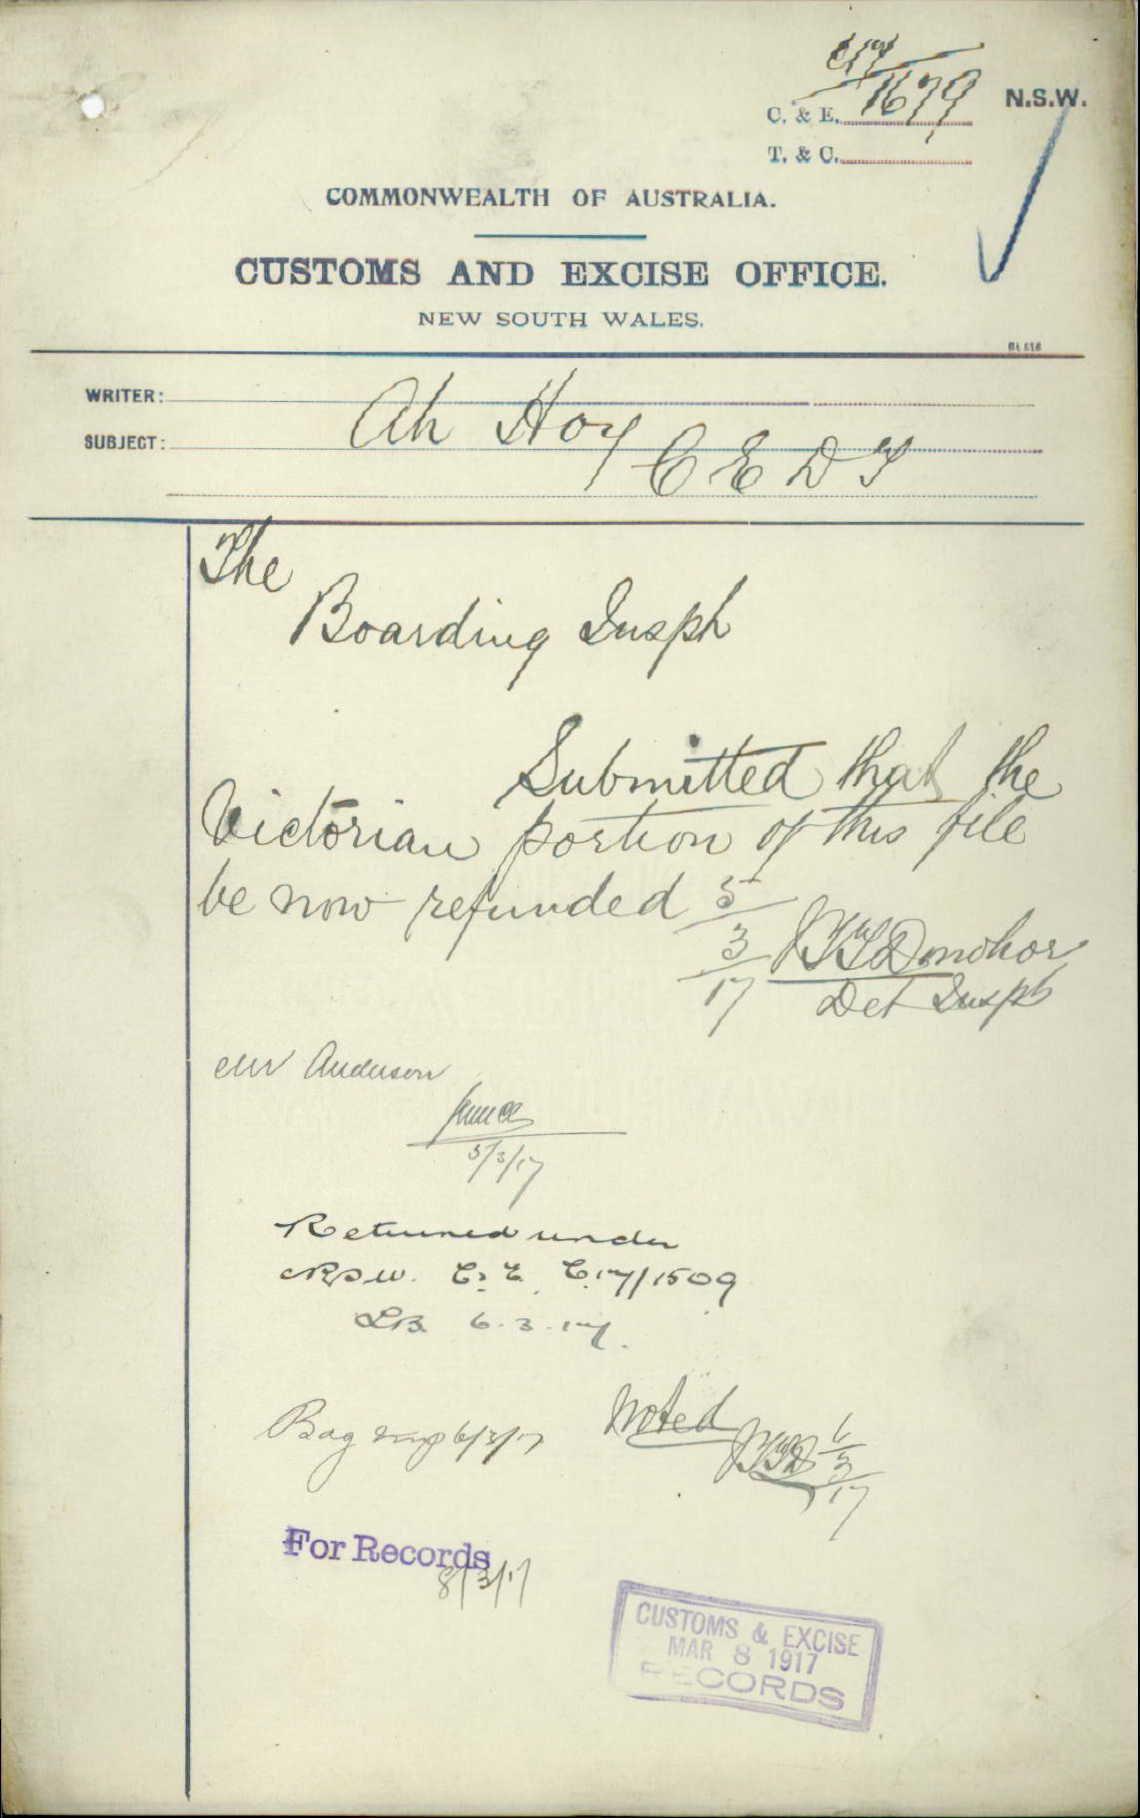 C17/1679
C. & E. N.S.W.
T. & C.
COMMONWEALTH OF AUSTRALIA.
CUSTOMS AND EXCISE OFFICE.
NEW SOUTH WALES.
WRITER:
SUBJECT:
Ah Hoy
C E D T
The
Boarding Inspr
Submitted that the
Victorian portion of this file
be now refunded 5/3/17
Donohoe
Det Inspr
Mr Anderson
5/3/17
Returned under
NSW. C. & E. C.17/1509
LB 6.3.17.
Bag Insp 6/3/17
Noted
6/3/17
For Records
8/3/17
CUSTOMS & EXCISE
MAR 8 1917
RECORDS